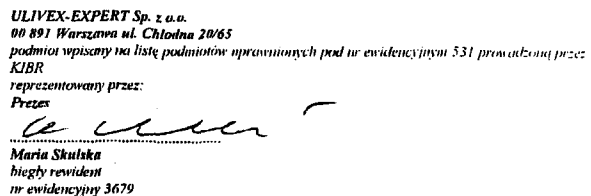 ULIVEX-EXPERT Sp. z o.o.
00 891 Warszawa ul. Chłodna 20/65
podmiot wpisany na listę podmiotów uprawnionych pod nr ewidencyjnym 531 prowadzoną przez
KIBR
reprezentowany przez:
Prezes
Maria Skulska
biegły rewident
nr ewidencyjny 3679